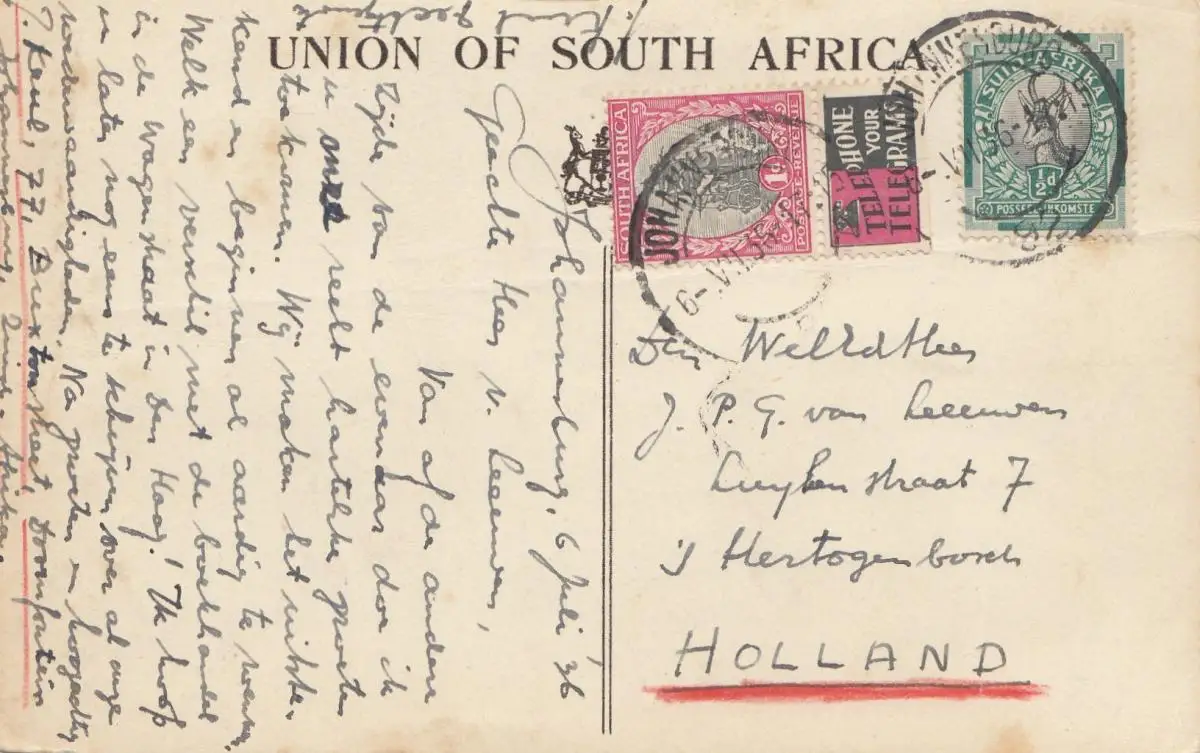 UNION OF SOUTH AFRICA
SOUTH AFRICA
1d
POSTAGE REVENUE
PHONE
YOUR
TELEGRAMS
TELE
SUID-AFRIKA
½d
POSSEEL INKOMSTE
JOHANNESBURG
6-VII 36
JOHANNESBURG
6-VII 36
Johannesburg, 6 Juli '36
Geachte Heer v. Leeuwen,
Van af de andere
zijde van de evenaar doe ik
u onze recht hartelijke groeten
toekomen. Wij maken het uitste-
kend en beginnen al aardig te wennen.
Welk een verschil met de boekhandel
in de Wagenstraat in Den Haag! Ik hoop
u later nog eens te schrijven over al onze
wederwaardigheden. Na groeten en hoogachtg
J. Keul, 77, Buxton street, Doornfontein
Johannesburg, Zuid-Afrika.
Den WelEdHeer
J. P. G. van Leeuwen
Luybenstraat 7
's Hertogenbosch
HOLLAND